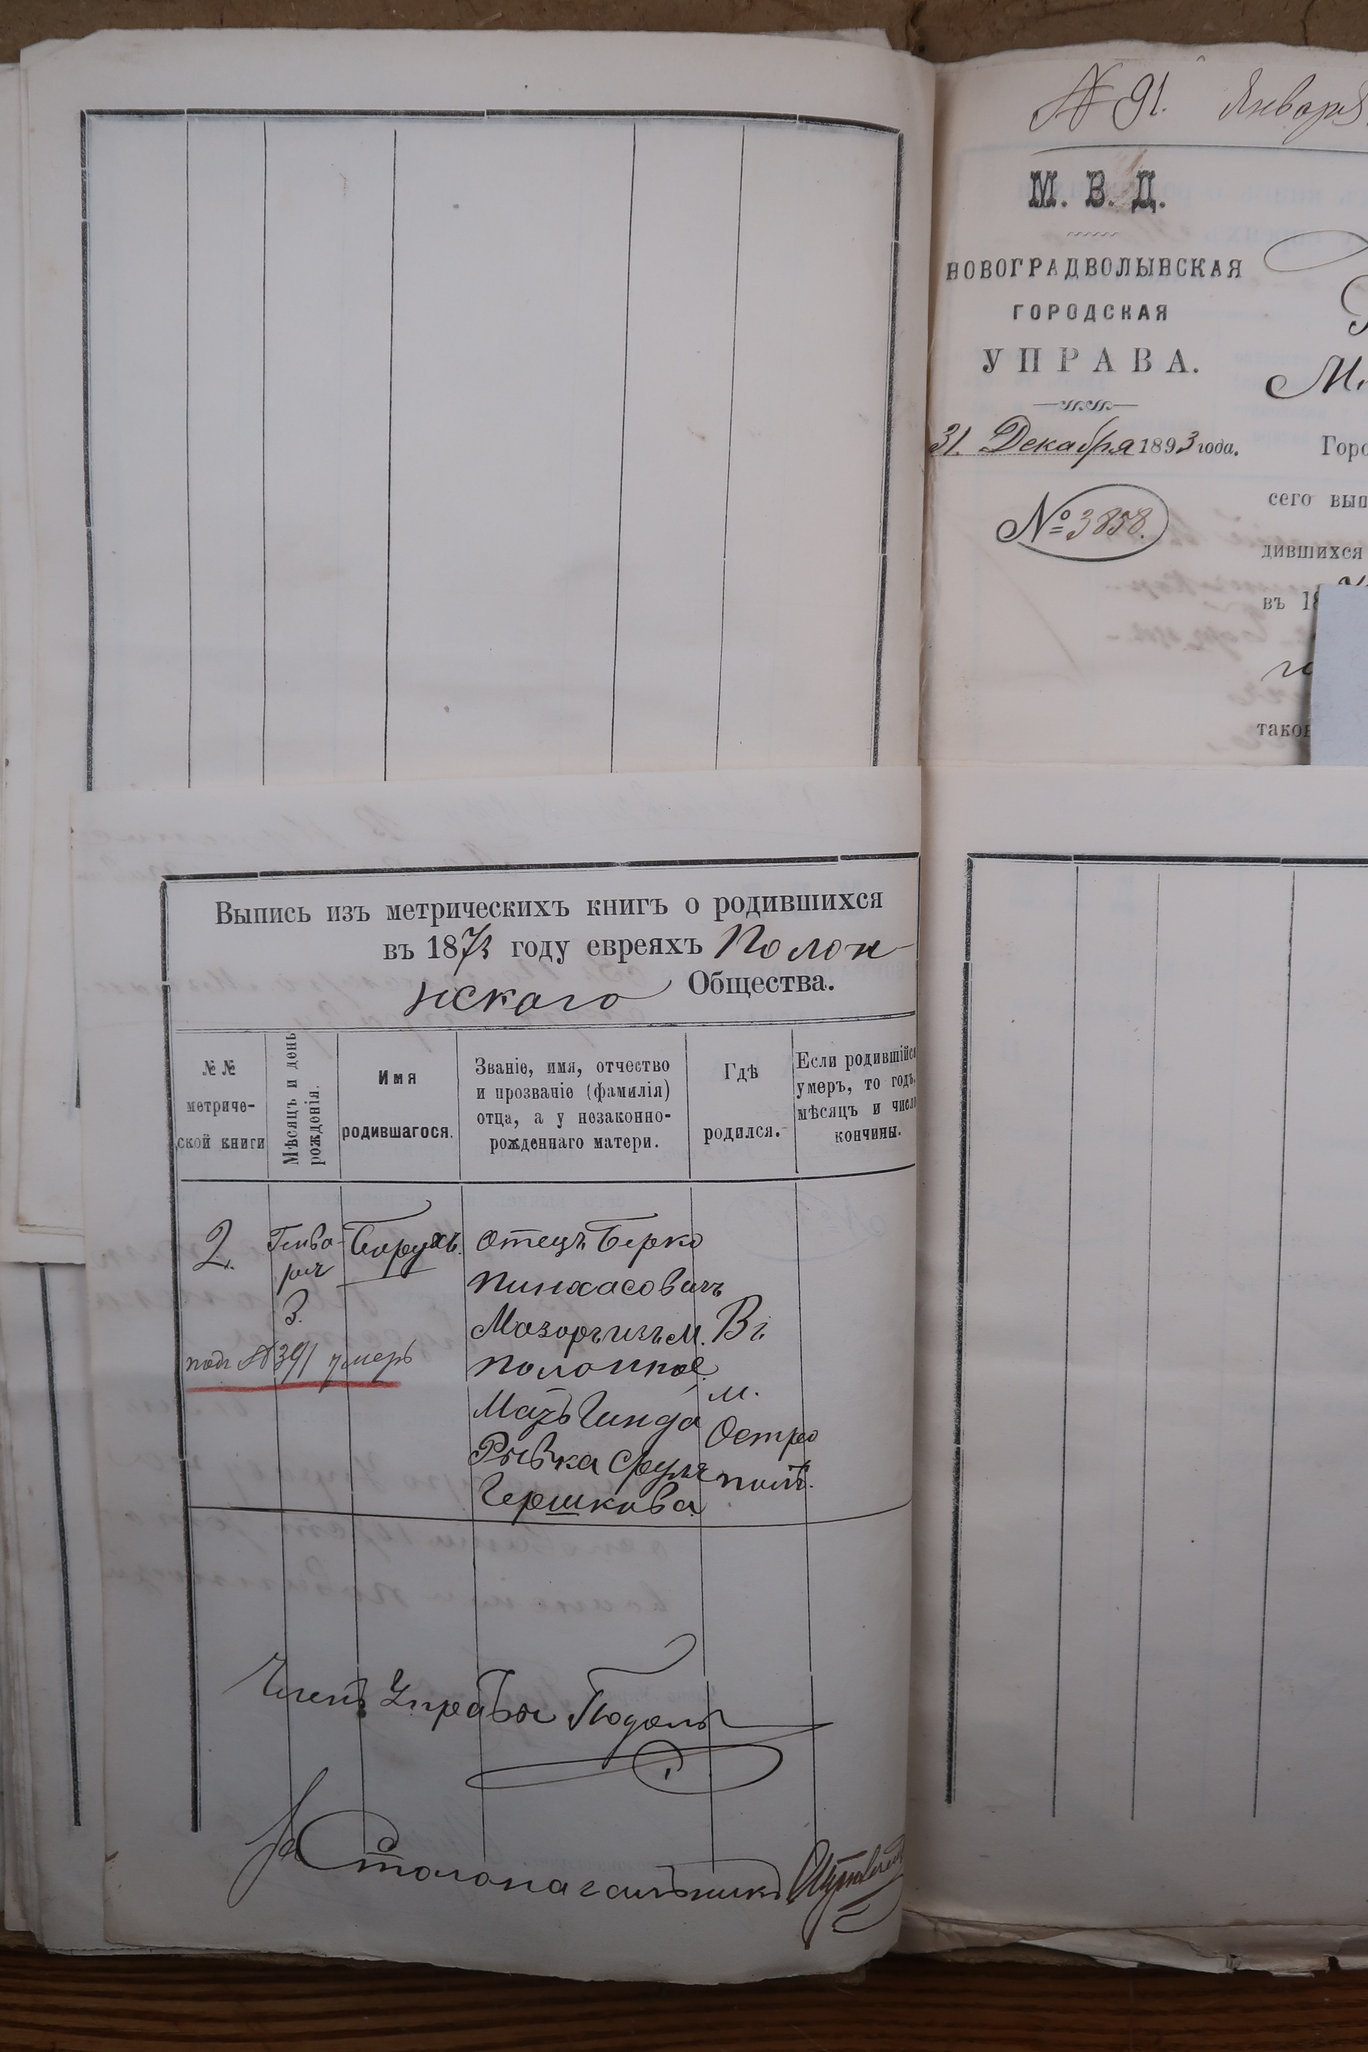 № 91. Января
М. В. Д.
НОВОГРАДВОЛЫНСКАЯ
ГОРОДСКАЯ
УПРАВА.
31. Декабря 1893 года.
№ 3858.
Горо
сего вып
дившихся
въ 18
таков
Выпись изъ метрическихъ книгъ о родившихся
въ 1873 году евреяхъ Полон-
нскаго Общества.
№ №
метриче-
ской книги
Мѣсяцъ и день
рожденія.
Имя
родившагося.
Званіе, имя, отчество
и прозваніе (фамилія)
отца, а у незаконно-
рожденнаго матери.
Гдѣ
родился.
Если родившійся
умеръ, то годъ,
мѣсяцъ и число
кончины.
2.
Генва-
ря
3.
Борухъ.
отецъ Берко
Пинхасовичъ
Мазоръ изъ м.
Полонное
Мать Гинда
Рывка Сруля
Гершкова
Въ
м.
Остро
полѣ.
подъ № 391 умеръ
Членъ Управы
За Столоначальника